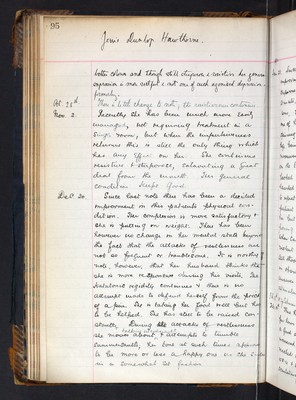 95
Jessie Dunlop Hawthorne.
better colour and though still stuporose & resistive her general
expression is more restful & not one of such agonised depression
formerly.
Oct. 28th There is little change to note, the resistiveness continues.
Nov. 2. Recently she has been much more easily
managed, not requiring treatment in a
single room, but when the impulsiveness
returns this is still the only thing which
has any effect on her. She continues
resistive & stuporose, salivating a great
deal from the mouth. Her general
condition keeps good.
Dec. 20. Since last note there has been a decided
improvement in this patient's physical con-
dition. Her complexion is more satisfactory &
she is putting on weight. There has been
however no change in her mental state beyond
the fact that the attacks of restlessness are
not so frequent or troublesome. It is worthy of
note, however, that her husband thinks that
she is more responsive during his visits. The
katatonic rigidity continues & there is no
attempt made to defend herself from the prick
of a pin. She is taking her food well but has
to be helped. She has also to be raised con-
stantly. During the attacks of restlessness
she moves about, & attempts to tumble
summersaults, her tone at such times appears
to be more or less a happy one as she smiles
in a somewhat fashion